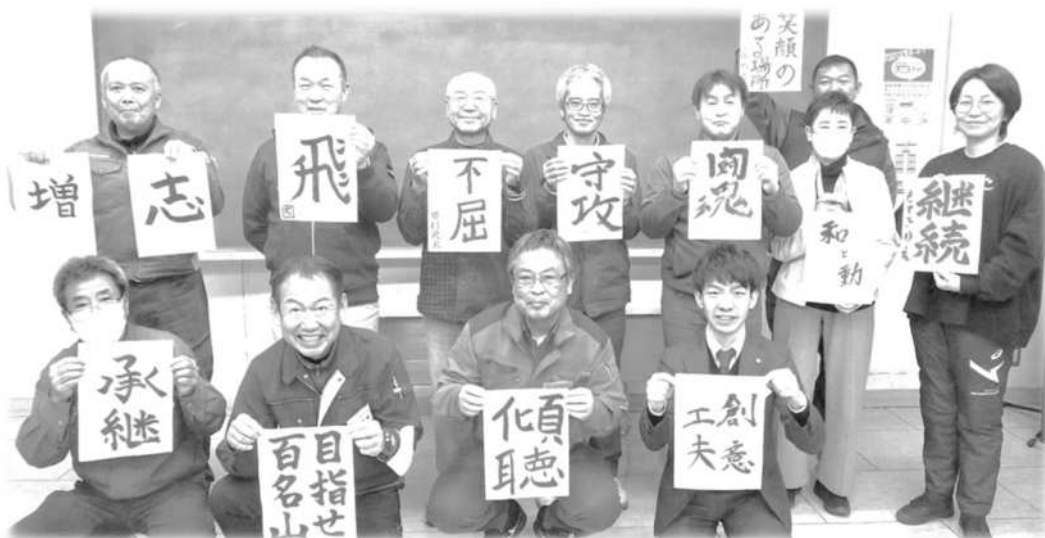 笑顔の
ある場所
増
志
飛
不屈
守攻
闘魂
和と動
継続
承継
目指せ
百名山
傾聴
創意
工夫